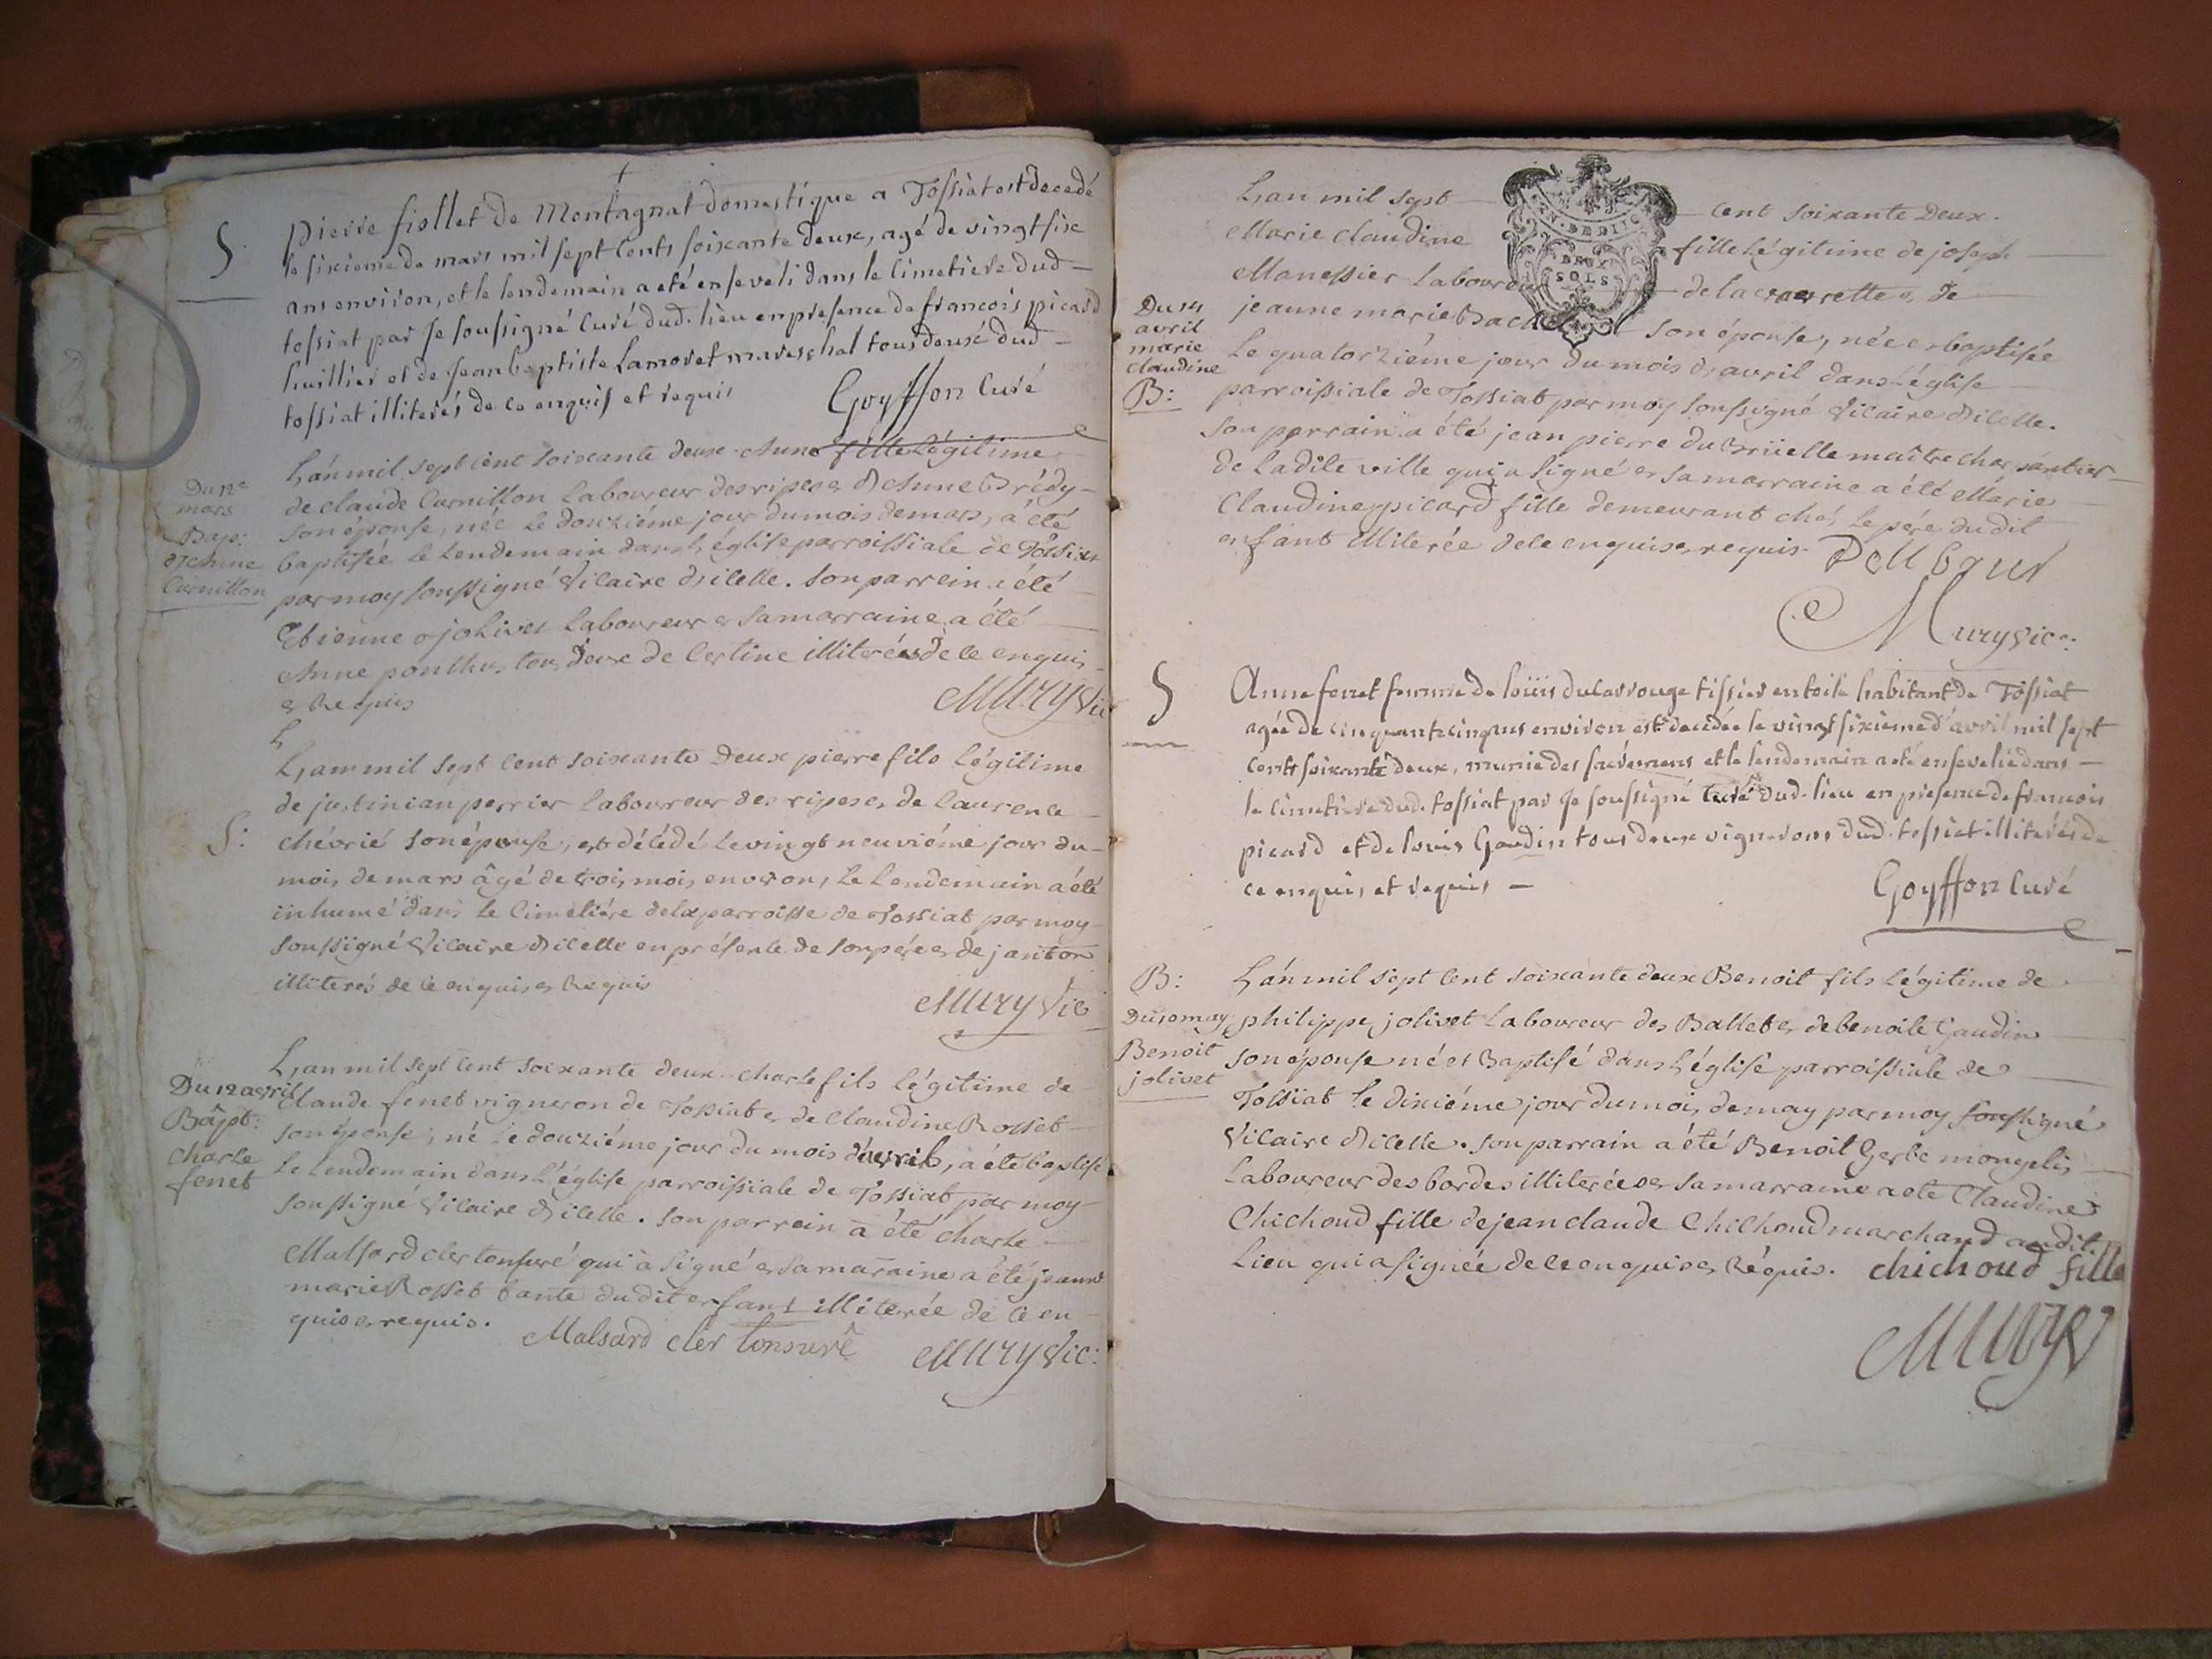 S.
pierre fiollet de Montagnat domestique a Tossiat est decedé
le sixieme de mars mil sept cents soixante deux, agé de vingt six
ans environ, et le lendemain a eté enseveli dans le cimetiere dud
tossiat par Je soussigné curé dud. lieu en presence de francois picard
huillier et de Jean baptiste Lamoret mareschal tous deux dud
tossiat illiterés de ce enquis et requis
Goyffon curé
Du 12e
mars
Bap:
d'Anne
Curnillon
L'an mil sept cent soixante deux Anne fille légitime
de claude Curnillon Laboureur des ripes et d'Anne Brédy
son épouse, née le douziéme jour du mois de mars, a été
baptisée le lendemain dans l'église parroissiale de Tossiat
par moy soussigné Vicaire d'icelle. son parrein a été
Etienne jolivet Laboureur et sa marraine a été
Anne ponthus tous deux de Certine illiterés de ce enquis
et Requis
Mury Vic
S:
L'an mil sept cent soixante Deux pierre fils légitime
de justinian perrier Laboureur des ripes et de Laurence
chévrié son épouse, est décédé le vingt neuviéme jour du
mois de mars âgé de trois mois environ, le lendemain a été
inhumé dans le Cimetiére de la parroisse de Tossiat par moy
soussigné Vicaire d'icelle en présence de son pére et de janton
illiterés de ce enquis et Requis
Mury Vic
Du 12 avril
Bâpt:
charle
fenet
L'an mil sept cent soixante deux charle fils légitime de
Claude fenet vigneron de Tossiat et de Claudine Rosset
son épouse, né le douziéme jour du mois d'avril, a été baptisé
le lendemain dans l'église parroissiale de Tossiat par moy
soussigné Vicaire d'icelle. son parrein a été charle
Malsard cler tonsuré qui a signé et sa maraine a été jeanne
marie Rosset tante dudit enfant illiterée de ce en
quis et requis.
Malsard cler tonsuré
Mury Vic:
EN. DEBIT
DEUX
SOLS
Du 14
avril
marie
claudine
B:
L'an mil sept cent soixante Deux.
Marie claudine fille légitime de joseph
Manessier Laboureur de la et de
jeanne marie son épouse, née et baptisée
Le quatorziéme jour du mois d'avril dans l'église
parroissiale de Tossiat par moy soussigné Vicaire d'icelle.
son parrain a été jean pierre maître charpentier
de Ladite ville qui a signé et sa marraine a été Marie
Claudine picard fille demeurant chés le pére dudit
enfant illiterée de ce enquise et requis.
Mury vic:
S
Anne ferret femme de loüis ducarrouge tissier en toile habitant de Tossiat
agée de cinquante cinq ans environ est decedée le vingt sixieme d'avril mil sept
cents soixante deux, munie des sacremens et le lendemain a eté ensevelie dans
le cimetiere dud. tossiat par Je soussigné curé dud. lieu en presence de francois
picard et de louis Gaudin tous deux vignerons dud. tossiat illiterés de
ce enquis et requis
Goyffon curé
B:
Du 10 may
Benoit
jolivet
L'an mil sept cent soixante deux Benoit fils légitime de
philippe jolivet Laboureur des Ballet et de benoite Gaudin
son épouse né et Baptisé dans l'église parroissiale de
Tossiat le dixiéme jour du mois de may par moy soussigné
Vicaire d'icelle. son parrain a été Benoit Gerbe
Laboureur des bordes illiterée et sa marraine a été Claudine
Chichoud fille de jean claude Chichoud marchand audit
Lieu qui a signée de ce enquise et Réquis.
chichoud fille
Mury V